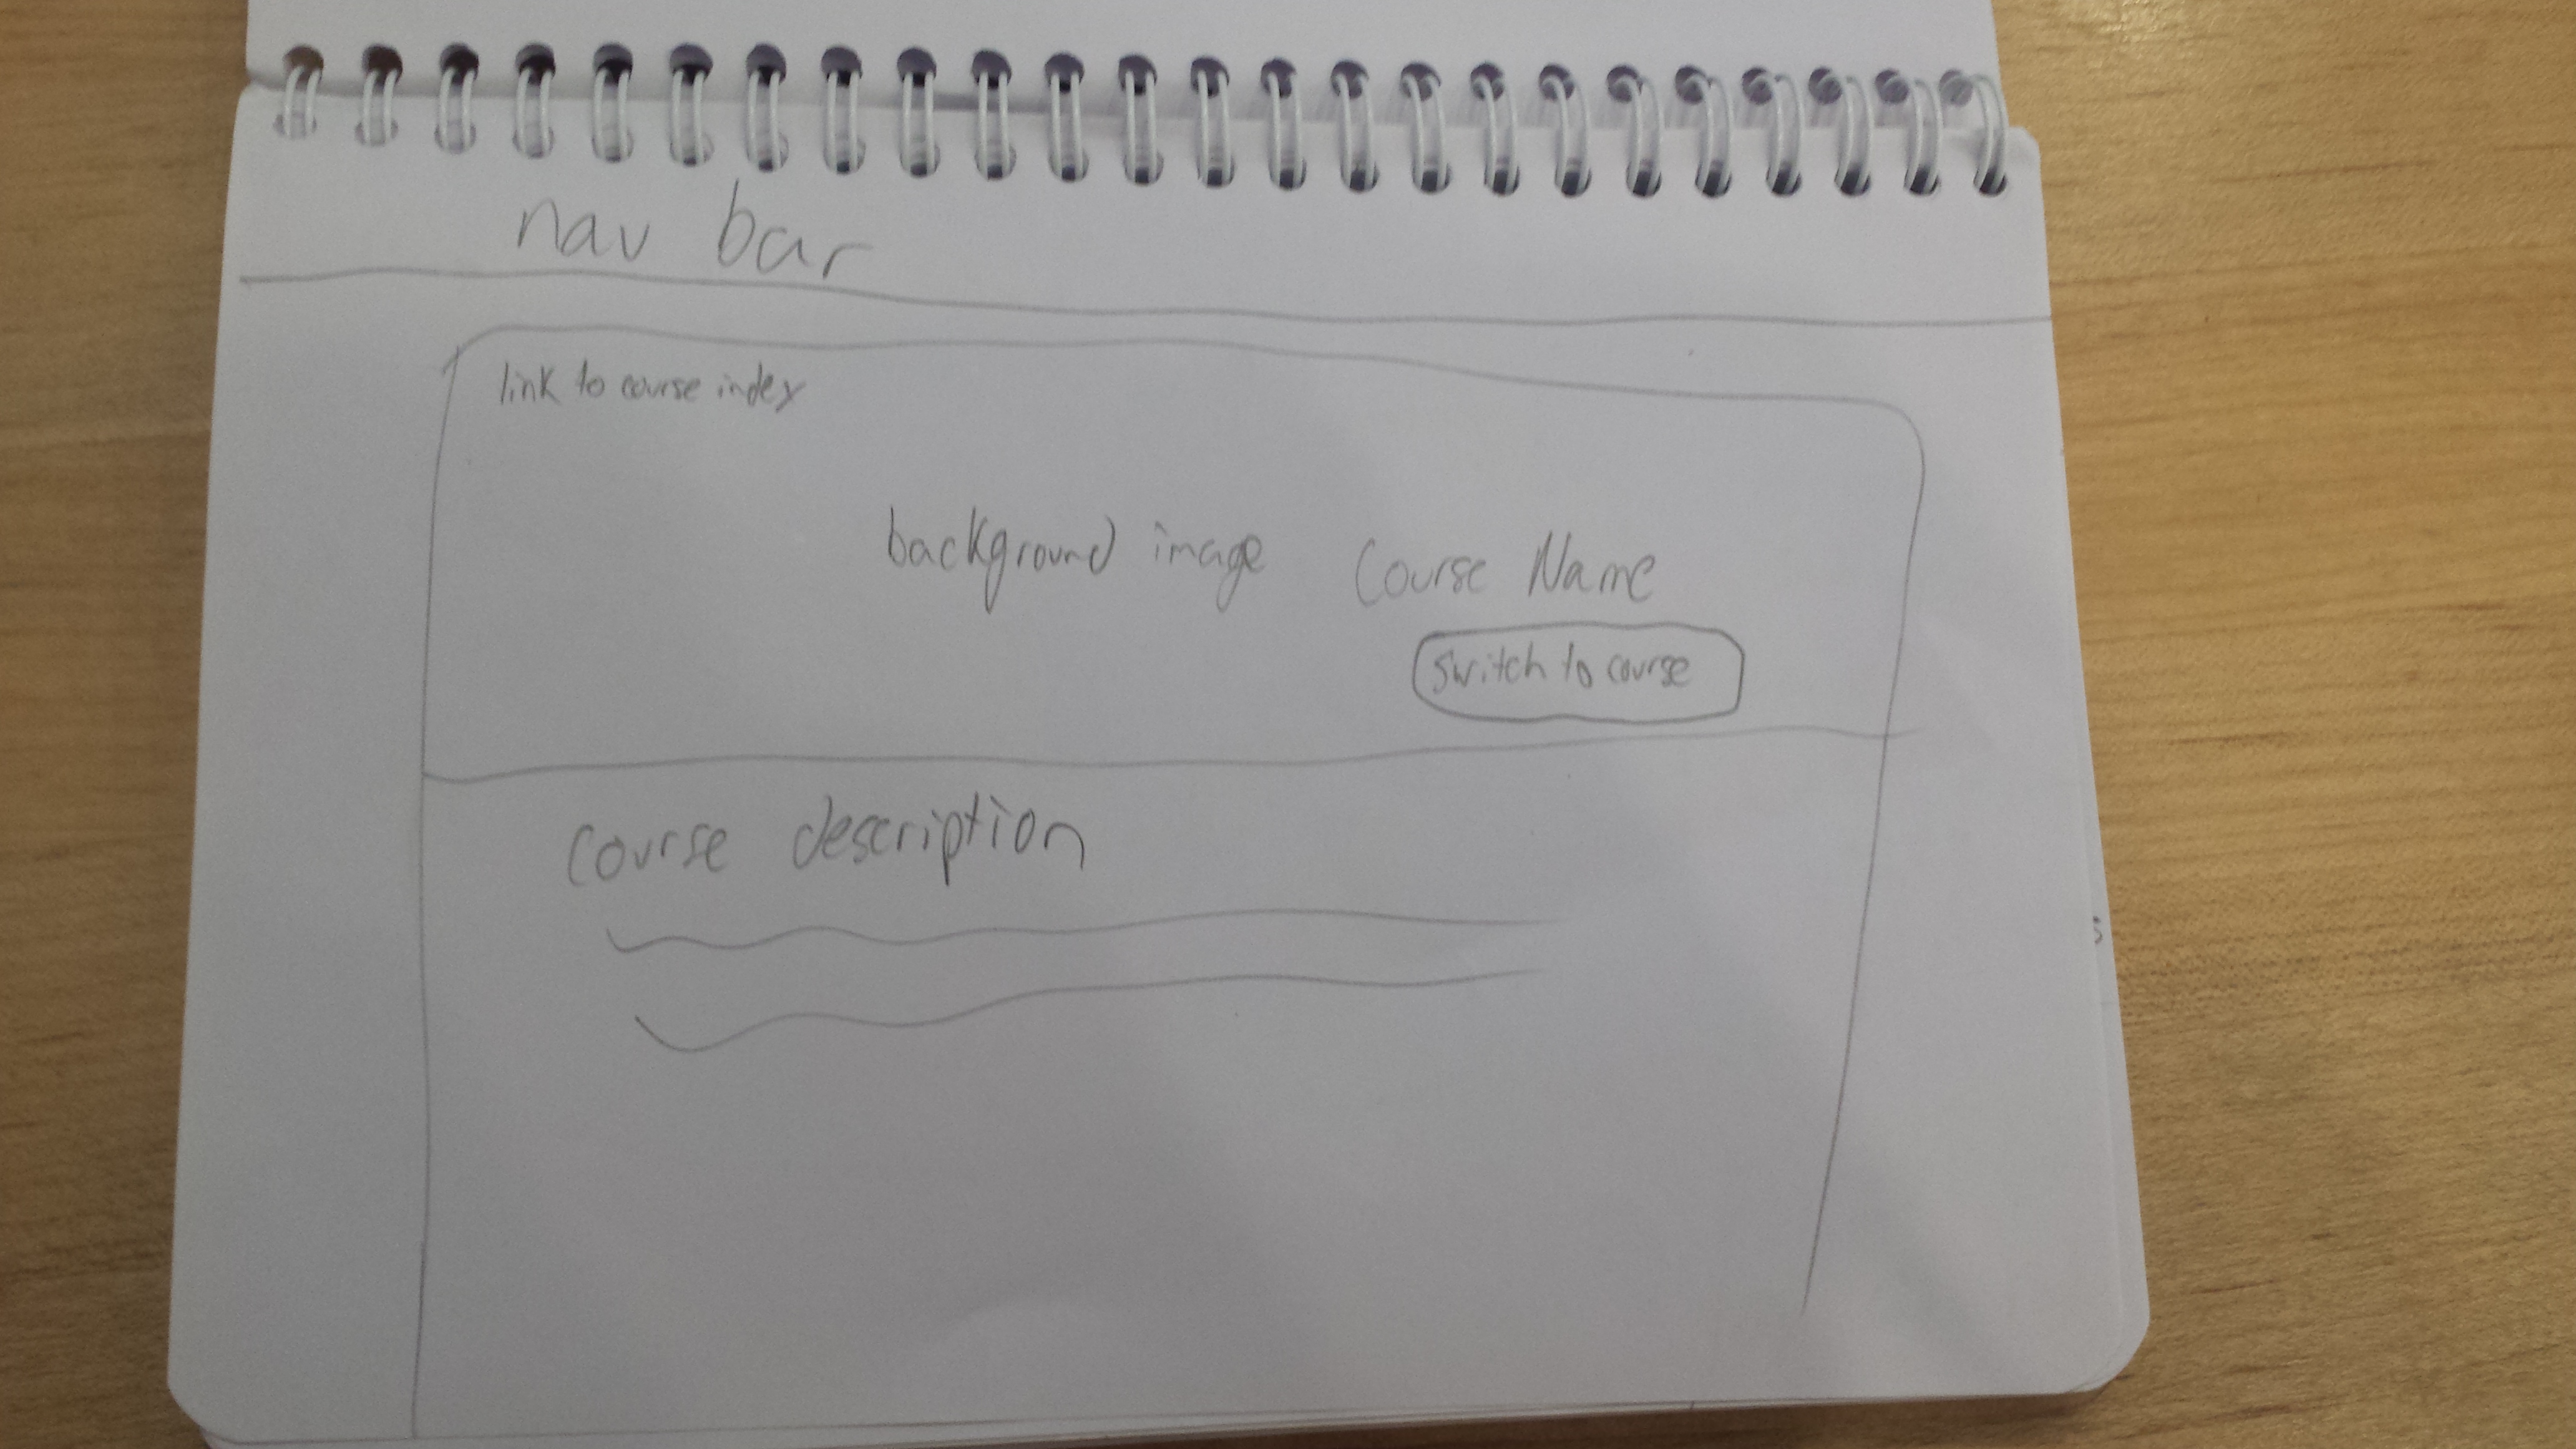 nav bar
link to course index
background image Course Name
switch to course
course description